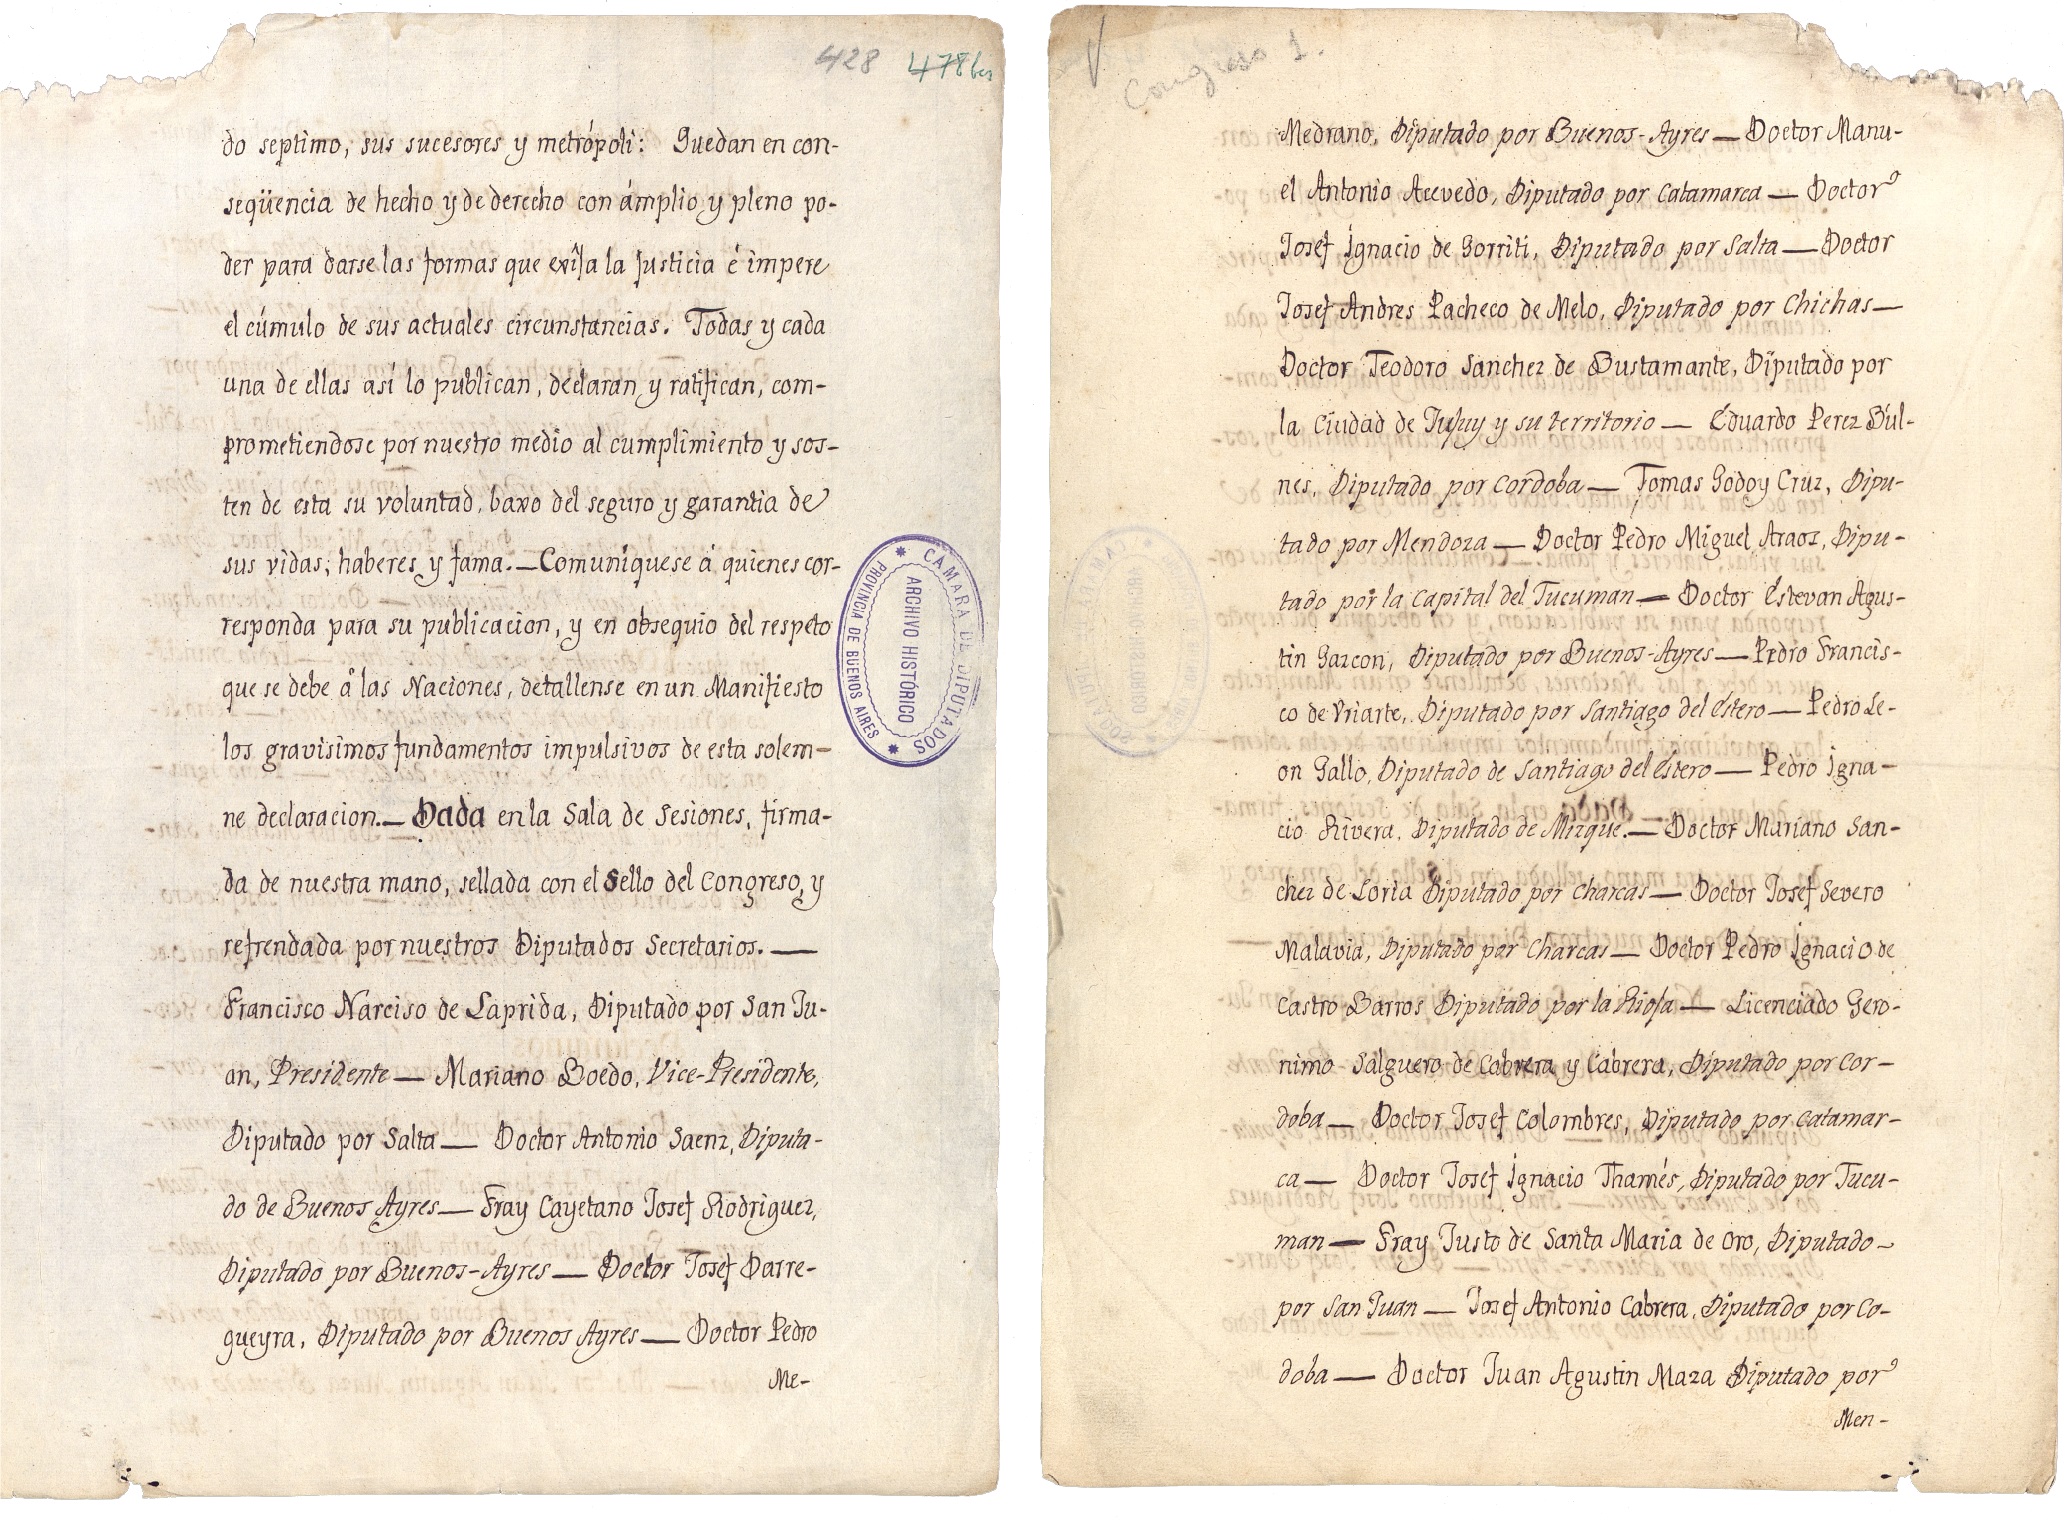 428 478 bis
do septimo, sus sucesores y metrópoli: Quedan en con-
seqüencia de hecho y de derecho con ámplio y pleno po-
der para darse las formas que exîja la justicia é impere
el cúmulo de sus actuales circunstancias. Todas y cada
una de ellas así lo publican, declaran y ratifican, com-
prometiendose por nuestro medio al cumplimiento y sos-
ten de esta su voluntad, baxo del seguro y garantia de
sus vidas, haberes y fama.— Comuníquese á quienes cor-
responda para su publicacion, y en obsequio del respeto
que se debe á las Naciones, detallense en un Manifiesto
los gravisimos fundamentos impulsivos de esta solem-
ne declaracion.— Dada en la Sala de Sesiones, firma-
da de nuestra mano, sellada con el Sello del Congreso, y
refrendada por nuestros Diputados Secretarios. —
Francisco Narciso de Laprida, Diputado por San Ju-
an, Presidente — Mariano Boedo, Vice-Presidente,
Diputado por Salta — Doctor Antonio Saenz, Diputa-
do de Buenos Ayres — Fray Cayetano Josef Rodriguez,
Diputado por Buenos-Ayres — Doctor Josef Darre-
gueyra, Diputado por Buenos Ayres — Doctor Pedro
Me-
CAMARA DE DIPUTADOS
ARCHIVO HISTÓRICO
PROVINCIA DE BUENOS AIRES
Congreso 1.
Medrano, Diputado por Buenos-Ayres — Doctor Manu-
el Antonio Acevedo, Diputado por Catamarca — Doctor
Josef Ignacio de Gorriti, Diputado por Salta — Doctor
Josef Andres Pacheco de Melo, Diputado por Chichas —
Doctor Teodoro Sanchez de Bustamante, Diputado por
la Ciudad de Jujuy y su territorio — Eduardo Perez Bul-
nes, Diputado por Cordoba — Tomas Godoy Cruz, Dipu-
tado por Mendoza — Doctor Pedro Miguel Araoz, Dipu-
tado por la Capital del Tucuman — Doctor Estevan Agus-
tin Gazcon, Diputado por Buenos-Ayres — Pedro Francis-
co de Uriarte, Diputado por Santiago del Estero — Pedro Le-
on Gallo, Diputado de Santiago del Estero — Pedro Igna-
cio Rivera, Diputado de Mizque. — Doctor Mariano San-
chez de Loria Diputado por Charcas — Doctor Josef Severo
Malavia, Diputado por Charcas — Doctor Pedro Ignacio de
Castro Barros Diputado por la Rioja — Licenciado Gero-
nimo Salguero de Cabrera y Cabrera, Diputado por Cor-
doba — Doctor Josef Colombres, Diputado por Catamar-
ca — Doctor Josef Ignacio Thamés, Diputado por Tucu-
man — Fray Justo de Santa Maria de Oro, Diputado
por San Juan — Josef Antonio Cabrera, Diputado por Co-
doba — Doctor Juan Agustin Maza Diputado por
Men-